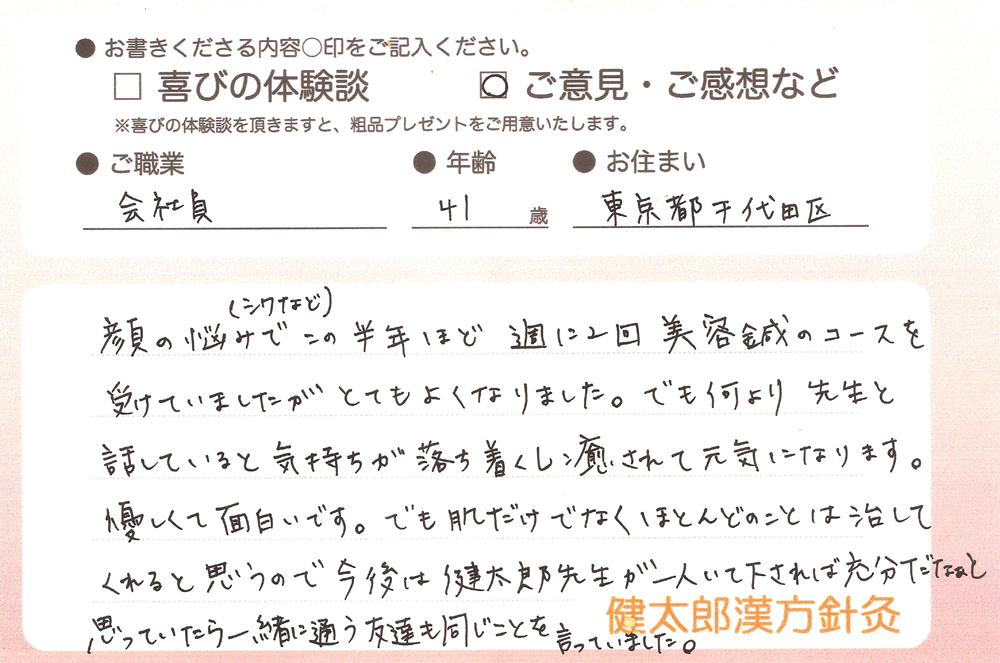 ● お書きくださる内容○印をご記入ください。
□ 喜びの体験談 ☐ ご意見・ご感想など
※喜びの体験談を頂きますと、粗品プレゼントをご用意いたします。
● ご職業 ● 年齢 ● お住まい
会社員 41 歳 東京都千代田区
(シワなど)
顔の悩みでこの半年ほど 週に2回 美容鍼のコースを
受けていましたがとてもよくなりました。でも何より 先生と
話していると気持ちが落ち着くし癒されて元気になります。
優しくて面白いです。でも肌だけでなくほとんどのことは治して
くれると思うので今後は健太郎先生が一人いて下されば充分だなぁと
思っていたら一緒に通う友達も同じことを言っていました。
健太郎漢方針灸